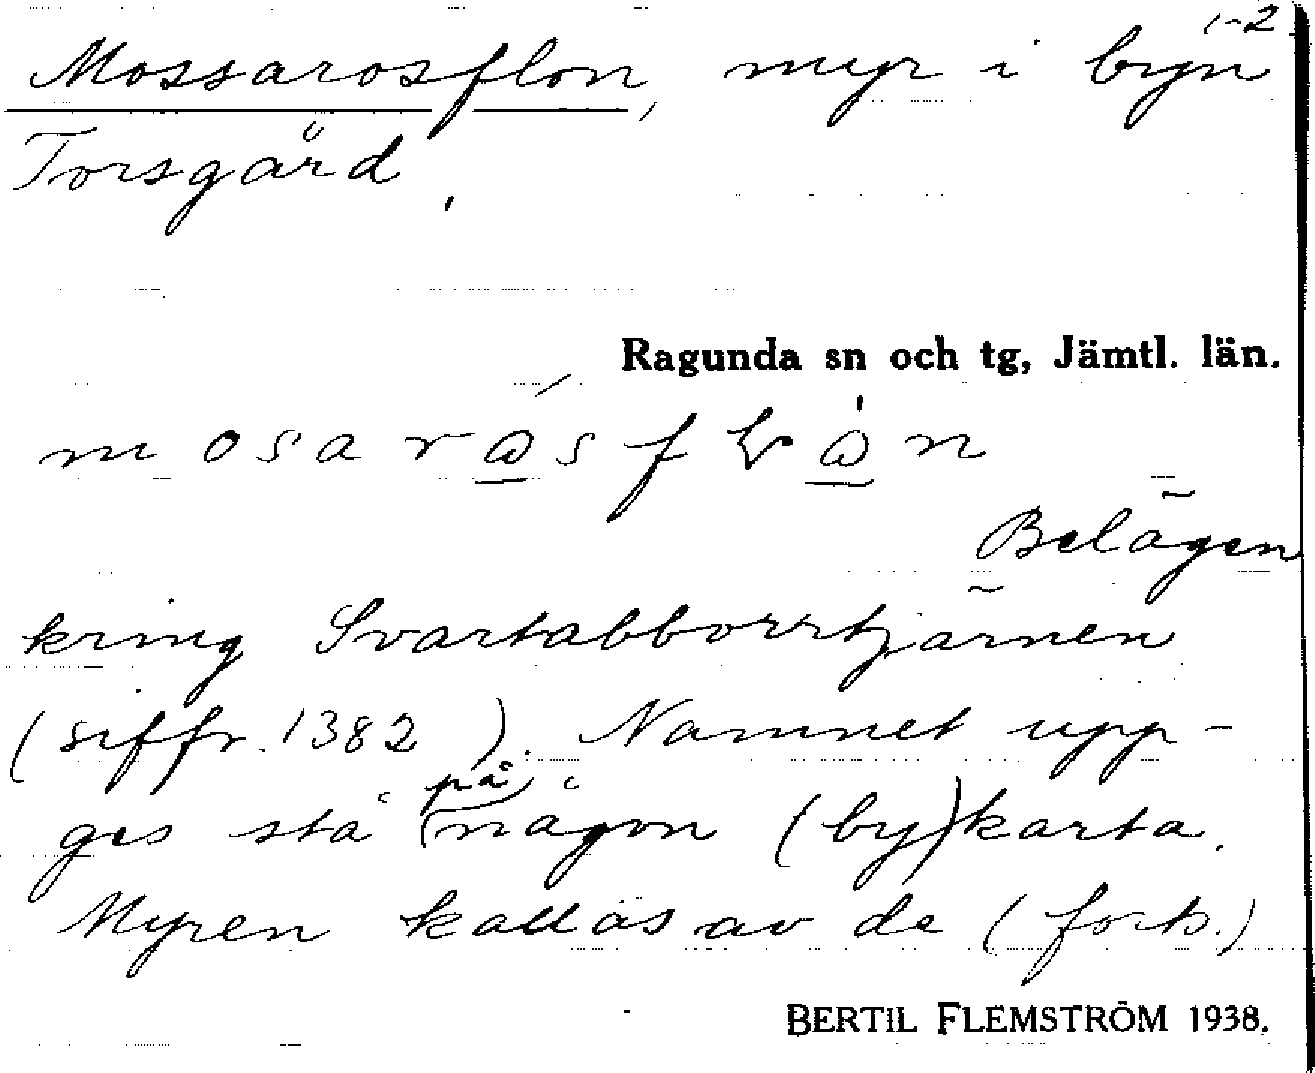 1-2
Mossarosflon, myr i byn
Torsgård.
Ragunda sn och tg, Jämtl. län.
Belägen
kring Svartabborrtjärnen
(siffr. 1382 ). Namnet upp-
ges stå på någon (by)karta.
Myren kallas av de (forts.)
BERTIL FLEMSTRÖM 1938.